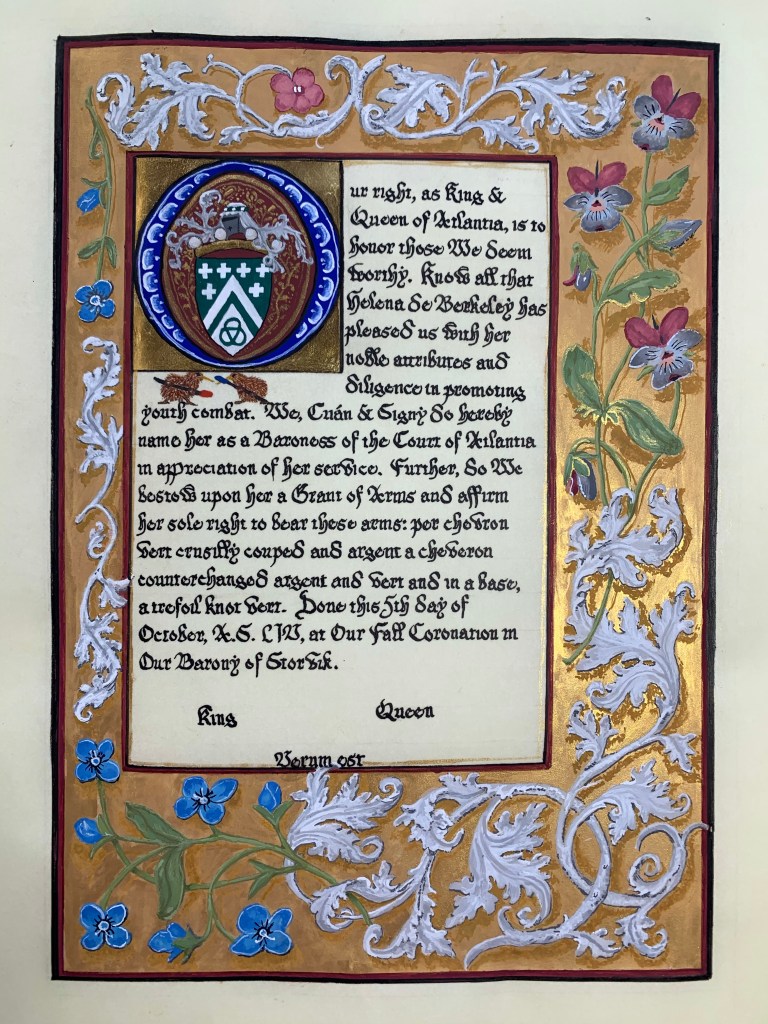 Our right, as King &
Queen of Atlantia, is to
honor those We deem
worthy. Know all that
Helena de Berkeley has
pleased us with her
noble attributes and
diligence in promoting
youth combat. We, Cuán & Signy do hereby
name her as a Baroness of the Court of Atlantia
in appreciation of her service. Further, do We
bestow upon her a Grant of Arms and affirm
her sole right to bear these arms: per chevron
vert crusilly couped and argent a cheveron
counterchanged argent and vert and in a base,
a trefoil knot vert. Done this 5th day of
October, A.S. LIV, at Our Fall Coronation in
Our Barony of Storvik.
King Queen
Verum est